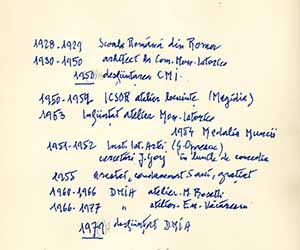 1928-1929 Scoala Română din Roma
1930-1950 arhitect la Com. Mon. Istorice
1950 desființarea CMI.
1950-1959 ICSOR atelier locuințe (Magidin)
1953 Înființat atelier Mon. Istorice
1954 Medalia Muncii
1951-1952 Inst. Ist. Artei (G. Oprescu)
cercetări J. Gorj în lunile de concediu
1955 arestat, condamnat 5 ani, grațiat
1960-1966 DMIA atelier. M. Bosetti
1966-1977 " atelier. Em. Văcărescu
1977 desființată DMIA